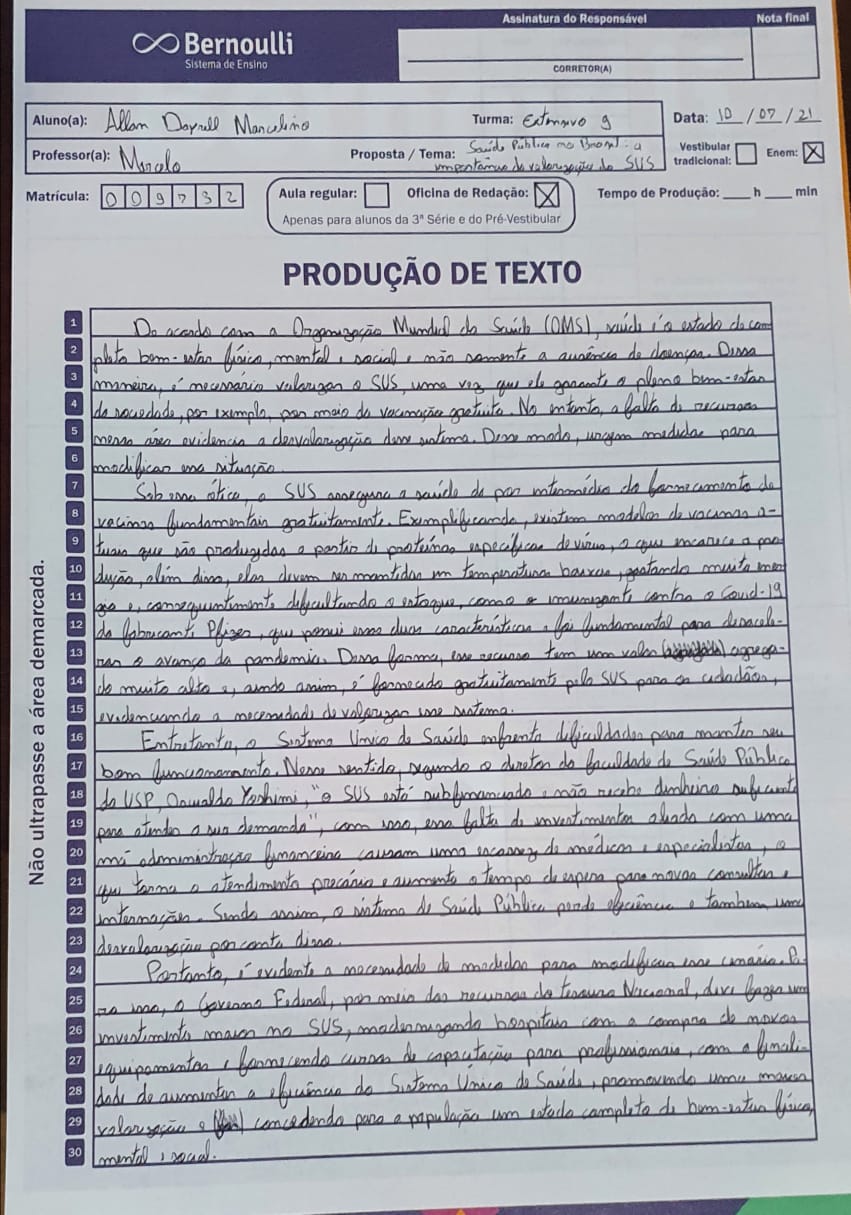 Bernoulli
Sistema de Ensino
Assinatura do Responsável
Nota final
CORRETOR(A)
Aluno(a): Allan Dayrell Marcelino
Turma: Extensivo 9
Data: 10 / 07 / 21
Professor(a): Marcelo
Proposta / Tema: Saúde Pública no Brasil: a
importância da valorização do SUS
Vestibular tradicional:
Enem: X
Matrícula: 0 0 9 7 3 2
Aula regular:
Oficina de Redação: X
Tempo de Produção: ____ h ____ min
Apenas para alunos da 3ª Série e do Pré-Vestibular
PRODUÇÃO DE TEXTO
Não ultrapasse a área demarcada.
1 De acordo com a Organização Mundial da Saúde (OMS), saúde é o estado de com
2 pleto bem-estar físico, mental e social e não somente a ausência de doenças. Dessa
3 maneira, é necessário valorizar o SUS, uma vez que ele garante o pleno bem-estar
4 da sociedade, por exemplo, por meio da vacinação gratuita. No entanto, a falta de recursos
5 nessa área evidencia a desvalorização desse sistema. Desse modo, urgem medidas para
6 modificar essa situação.
7 Sob essa ótica, o SUS assegura a saúde da por intermédio do fornecimento de
8 vacinas fundamentais gratuitamente. Exemplificando, existem modelos de vacinas a-
9 tuais que são produzidas a partir de proteínas específicas de vírus, o que encarece a pro
10 dução, além disso, elas devem ser mantidas em temperaturas baixas, gastando muita ener
11 gia e, consequintimente dificultando o estoque, como o imunizante contra a Covid-19
12 da fabricante Pfizer, que possui essas duas características e foi fundamental para desacele-
13 rar o avanço da pandemia. Dessa forma, esse recurso tem um valor agrega-
14 do muito alto e, ainda assim, é fornecido gratuitamente pelo SUS para os cidadãos,
15 evidenciando a necessidade de valorizar esse sistema.
16 Entretanto, o Sistema Único de Saúde enfrenta dificuldades para manter seu
17 bom funcionamento. Nesse sentido, segundo o diretor da faculdade de Saúde Pública
18 da USP, Oswaldo Yoshimi, "o SUS está subfinanciado e não recebe dinheiro suficiente
19 para atender a sua demanda", com isso, essa falta de investimentos aliada com uma
20 má administração financeira causam uma escassez de médicos e especialistas, o
21 que torna o atendimento precário e aumenta o tempo de espera para novas consultas e
22 internações. Sendo assim, o sistema de Saúde Pública perde eficiência e também uma
23 desvalorização por conta disso.
24 Portanto, é evidente a necessidade de medidas para modificar esse cenário. Pa-
25 ra isso, o Governo Federal, por meio dos recursos do tesouro Nacional, deve fazer um
26 investimento maior no SUS, modernizando hospitais com a compra de novos
27 equipamentos e fornecendo cursos de capacitação para profissionais, com a finali-
28 dade de aumentar a eficiência do Sistema Único de Saúde, promovendo uma maior
29 valorização e concedendo para a população um estado completo de bem-estar físico,
30 mental e social.